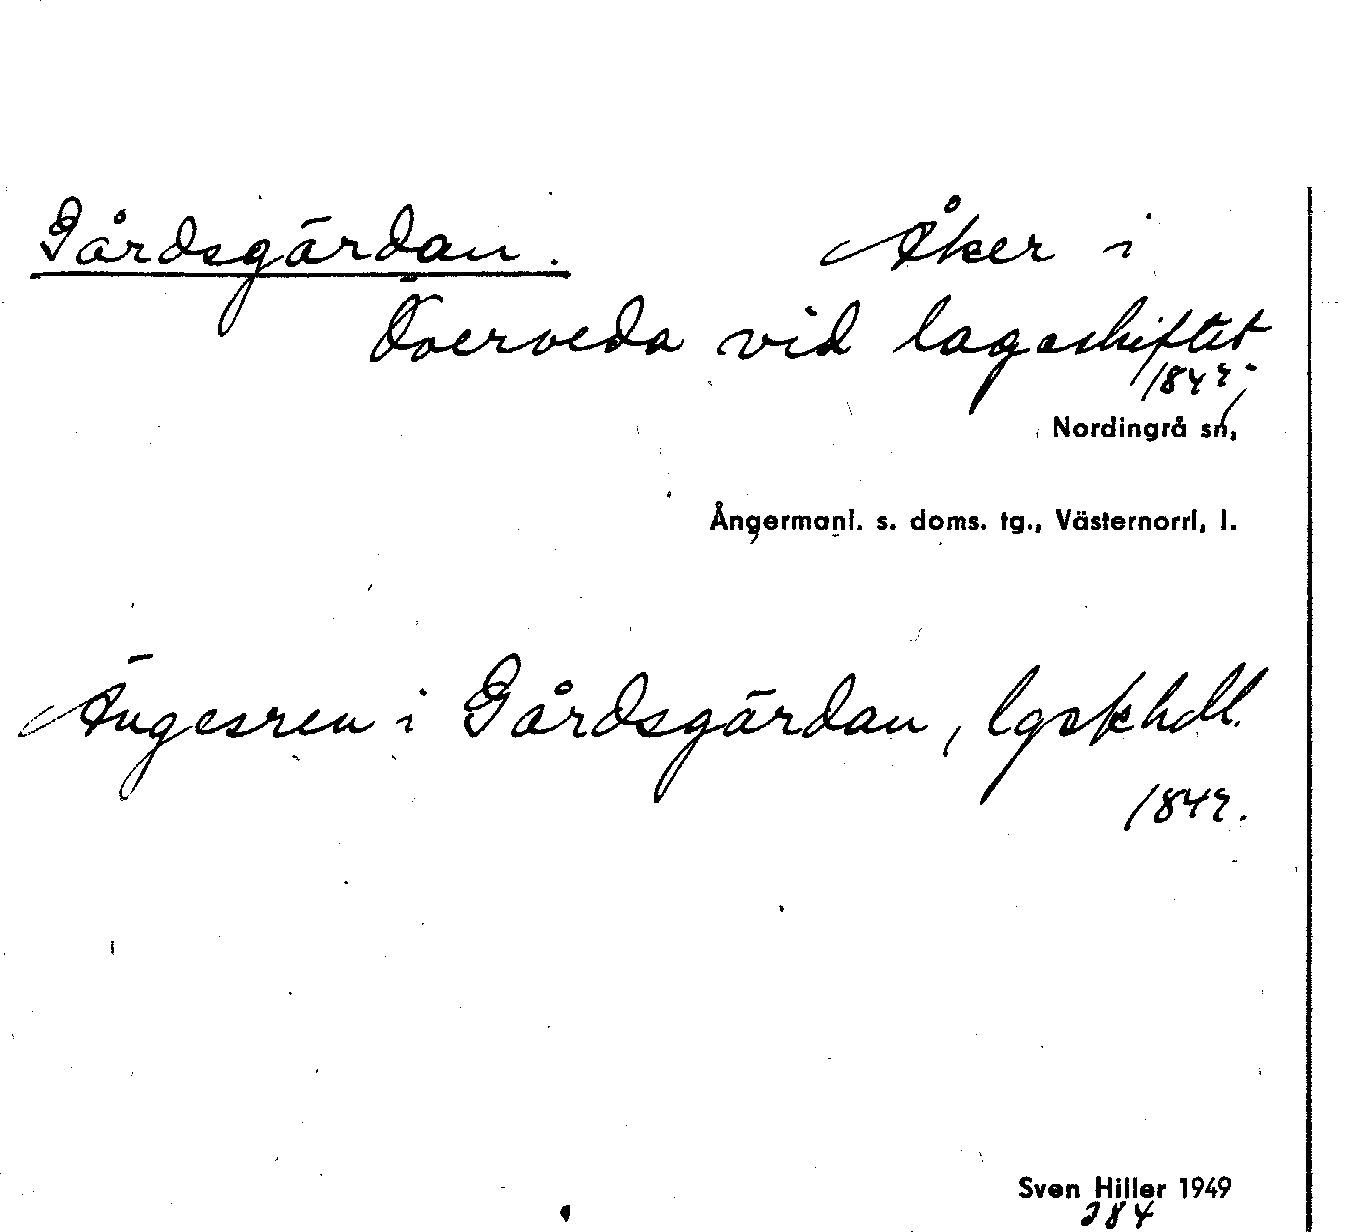 Gårdsgärdan. Åker i
Överveda vid lagaskiftet
Nordingrå sn,
Ångermanl. s. doms. tg., Västernorrl. l.
Ängesren i Gårdsgärdan, lgskhdl.
Sven Hiller 1949
284